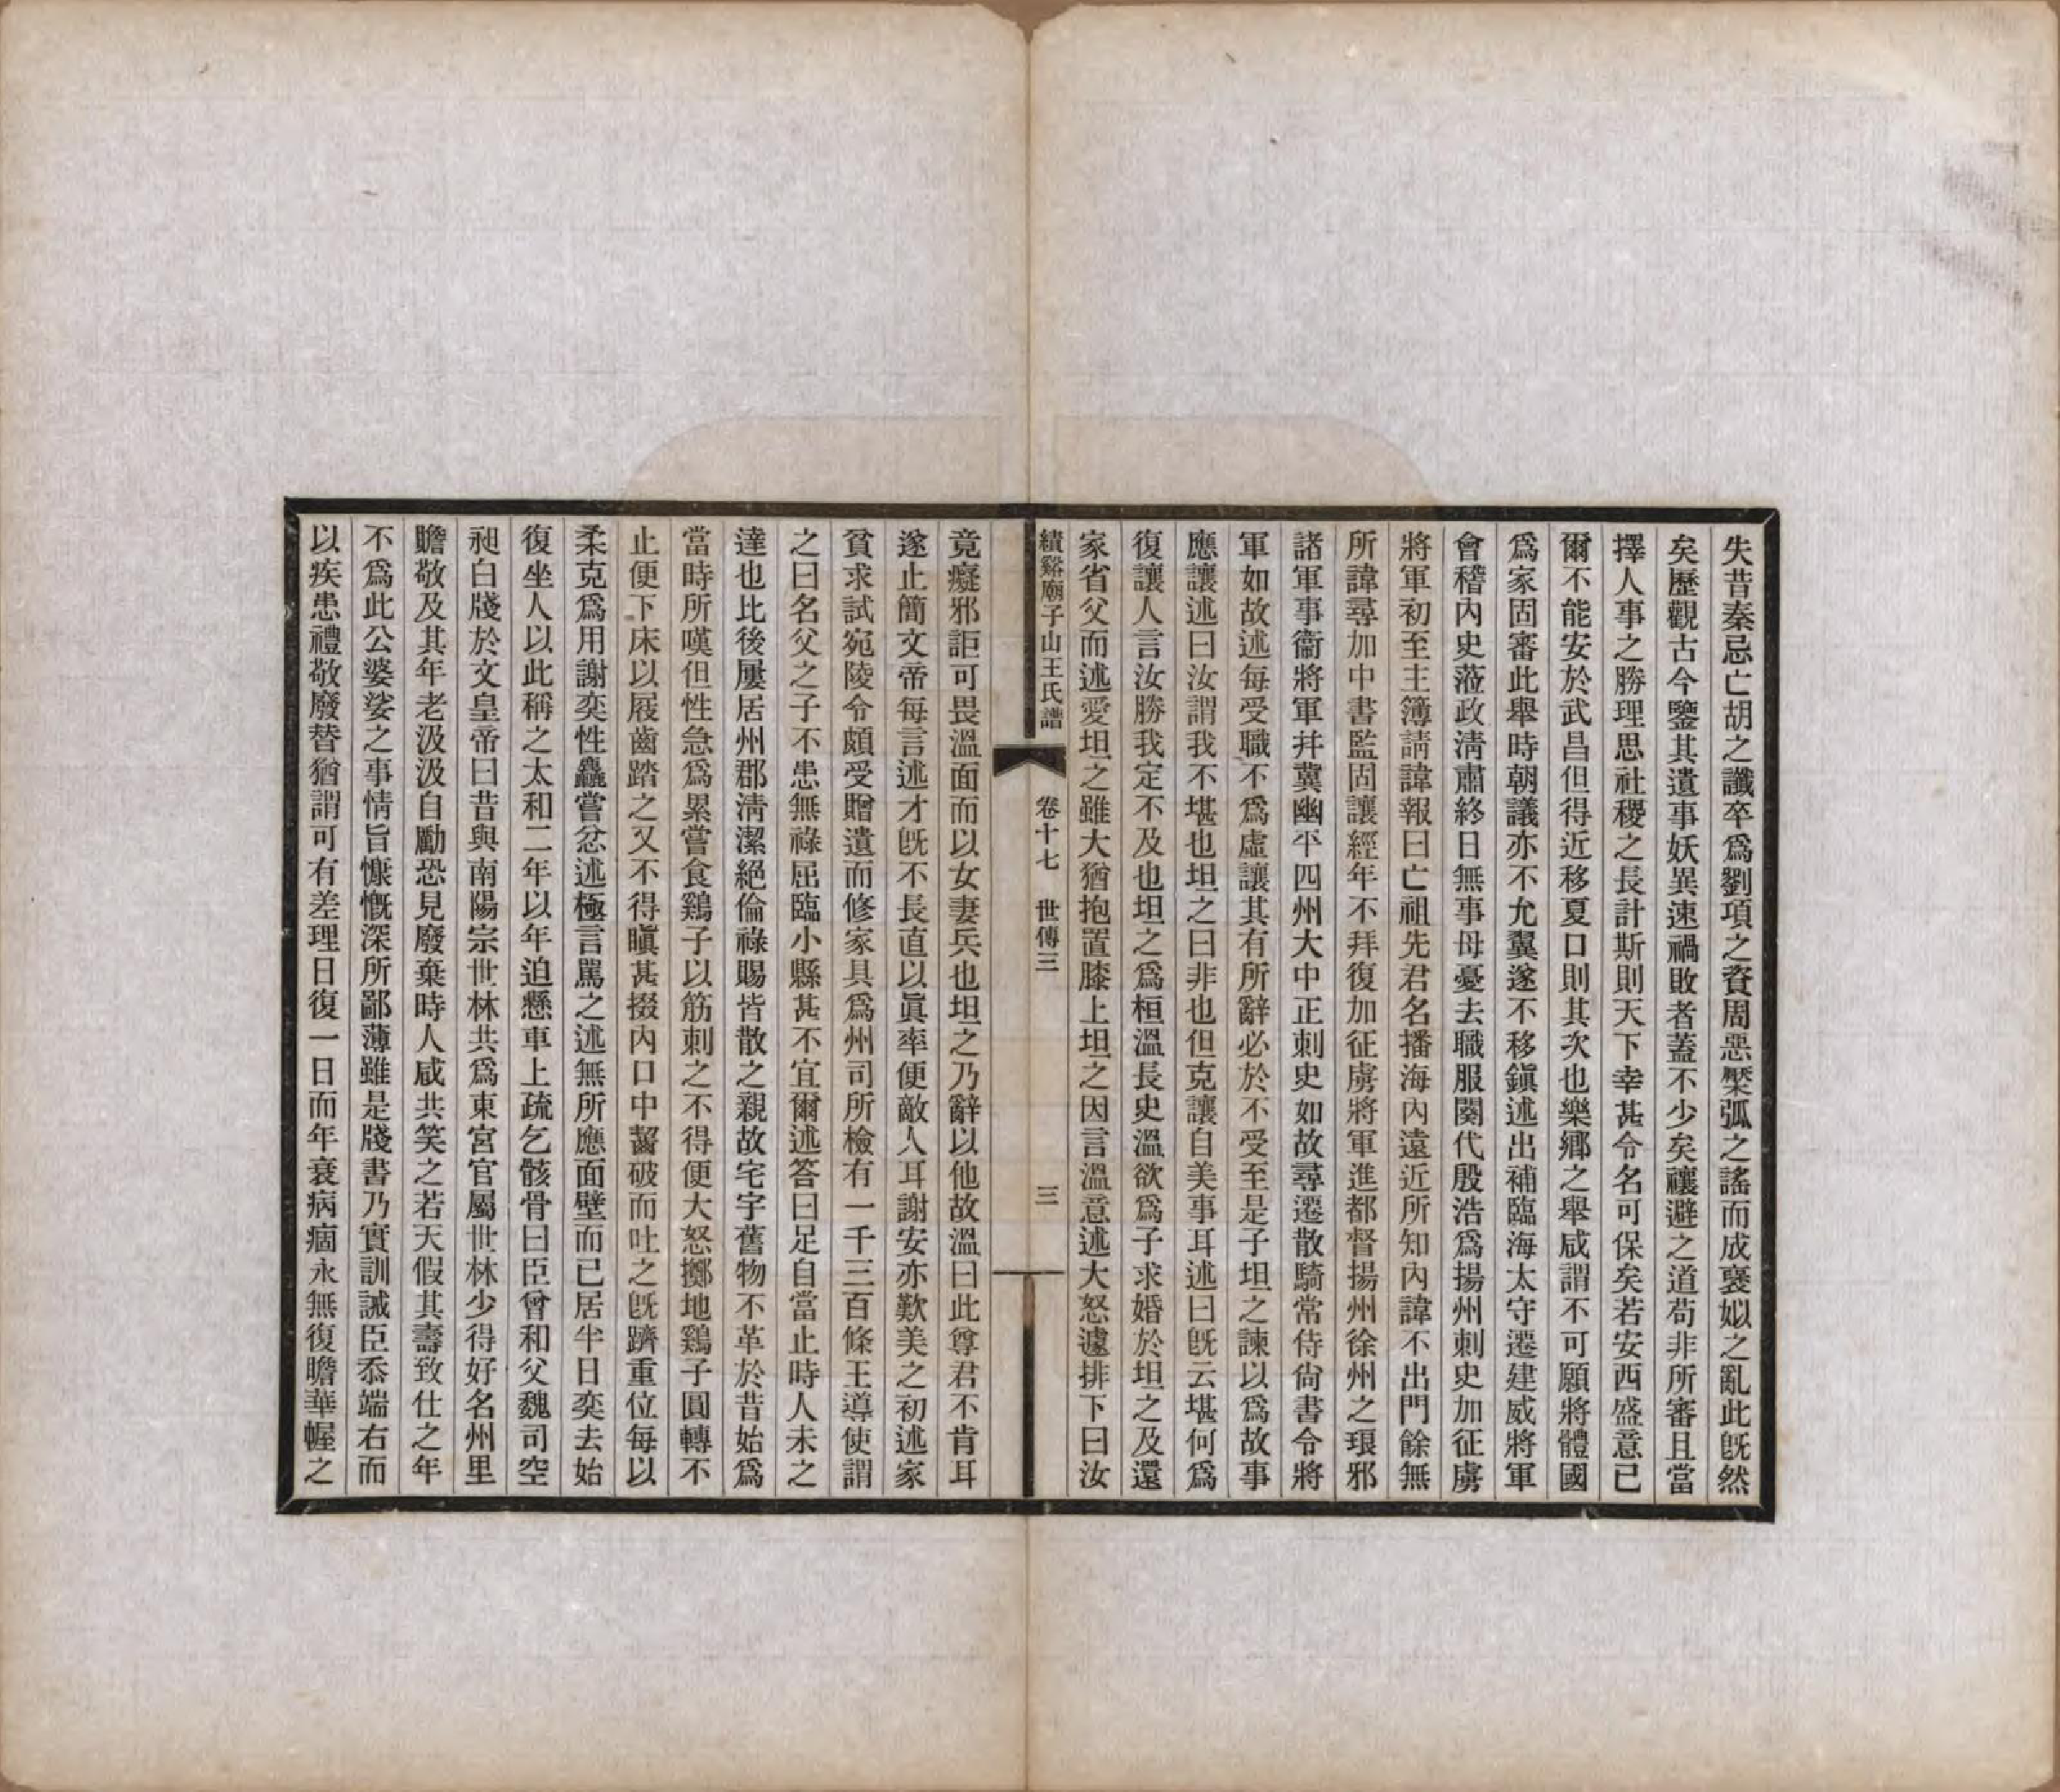 失昔秦忌亡胡之讖卒爲劉項之資周惡檿弧之謠而成褒姒之亂此旣然
矣歷觀古今鑒其遺事妖異速禍敗者蓋不少矣禳避之道苟非所審且當
擇人事之勝理思社稷之長計斯則天下幸甚令名可保矣若安西盛意已
爾不能安於武昌但得近移夏口則其次也樂鄉之舉咸謂不可願將體國
爲家固審此舉時朝議亦不允翼遂不移鎭述出補臨海太守遷建威將軍
會稽內史蒞政淸肅終日無事母憂去職服闋代殷浩爲揚州刺史加征虜
將軍初至主簿請諱報曰亡祖先君名播海內遠近所知內諱不出門餘無
所諱尋加中書監固讓經年不拜復加征虜將軍進都督揚州徐州之琅邪
諸軍事衞將軍幷冀幽平四州大中正刺史如故尋遷散騎常侍尙書令將
軍如故述每受職不爲虛讓其有所辭必於不受至是子坦之諫以爲故事
應讓述曰汝謂我不堪也坦之曰非也但克讓自美事耳述曰旣云堪何爲
復讓人言汝勝我定不及也坦之爲桓溫長史溫欲爲子求婚於坦之及還
家省父而述愛坦之雖大猶抱置膝上坦之因言溫意述大怒遽排下曰汝
績谿廟子山王氏譜　卷十七　世傳三　三
竟癡邪詎可畏溫面而以女妻兵也坦之乃辭以他故溫曰此尊君不肯耳
遂止簡文帝每言述才旣不長直以眞率便敵人耳謝安亦歎美之初述家
貧求試宛陵令頗受贈遺而修家具爲州司所檢有一千三百條王導使謂
之曰名父之子不患無祿屈臨小縣甚不宜爾述答曰足自當止時人未之
達也比後屢居州郡淸潔絕倫祿賜皆散之親故宅宇舊物不革於昔始爲
當時所嘆但性急爲累嘗食鷄子以筋刺之不得便大怒擲地鷄子圓轉不
止便下床以屐齒踏之又不得瞋甚掇內口中齧破而吐之旣躋重位每以
柔克爲用謝奕性麤嘗忿述極言罵之述無所應面壁而已居半日奕去始
復坐人以此稱之太和二年以年迫懸車上疏乞骸骨曰臣曾和父魏司空
昶白牋於文皇帝曰昔與南陽宗世林共爲東宮官屬世林少得好名州里
瞻敬及其年老汲汲自勵恐見廢棄時人咸共笑之若天假其壽致仕之年
不爲此公婆娑之事情旨慷慨深所鄙薄雖是牋書乃實訓誡臣忝端右而
以疾患禮敬廢替猶謂可有差理日復一日而年衰病痼永無復瞻華幄之